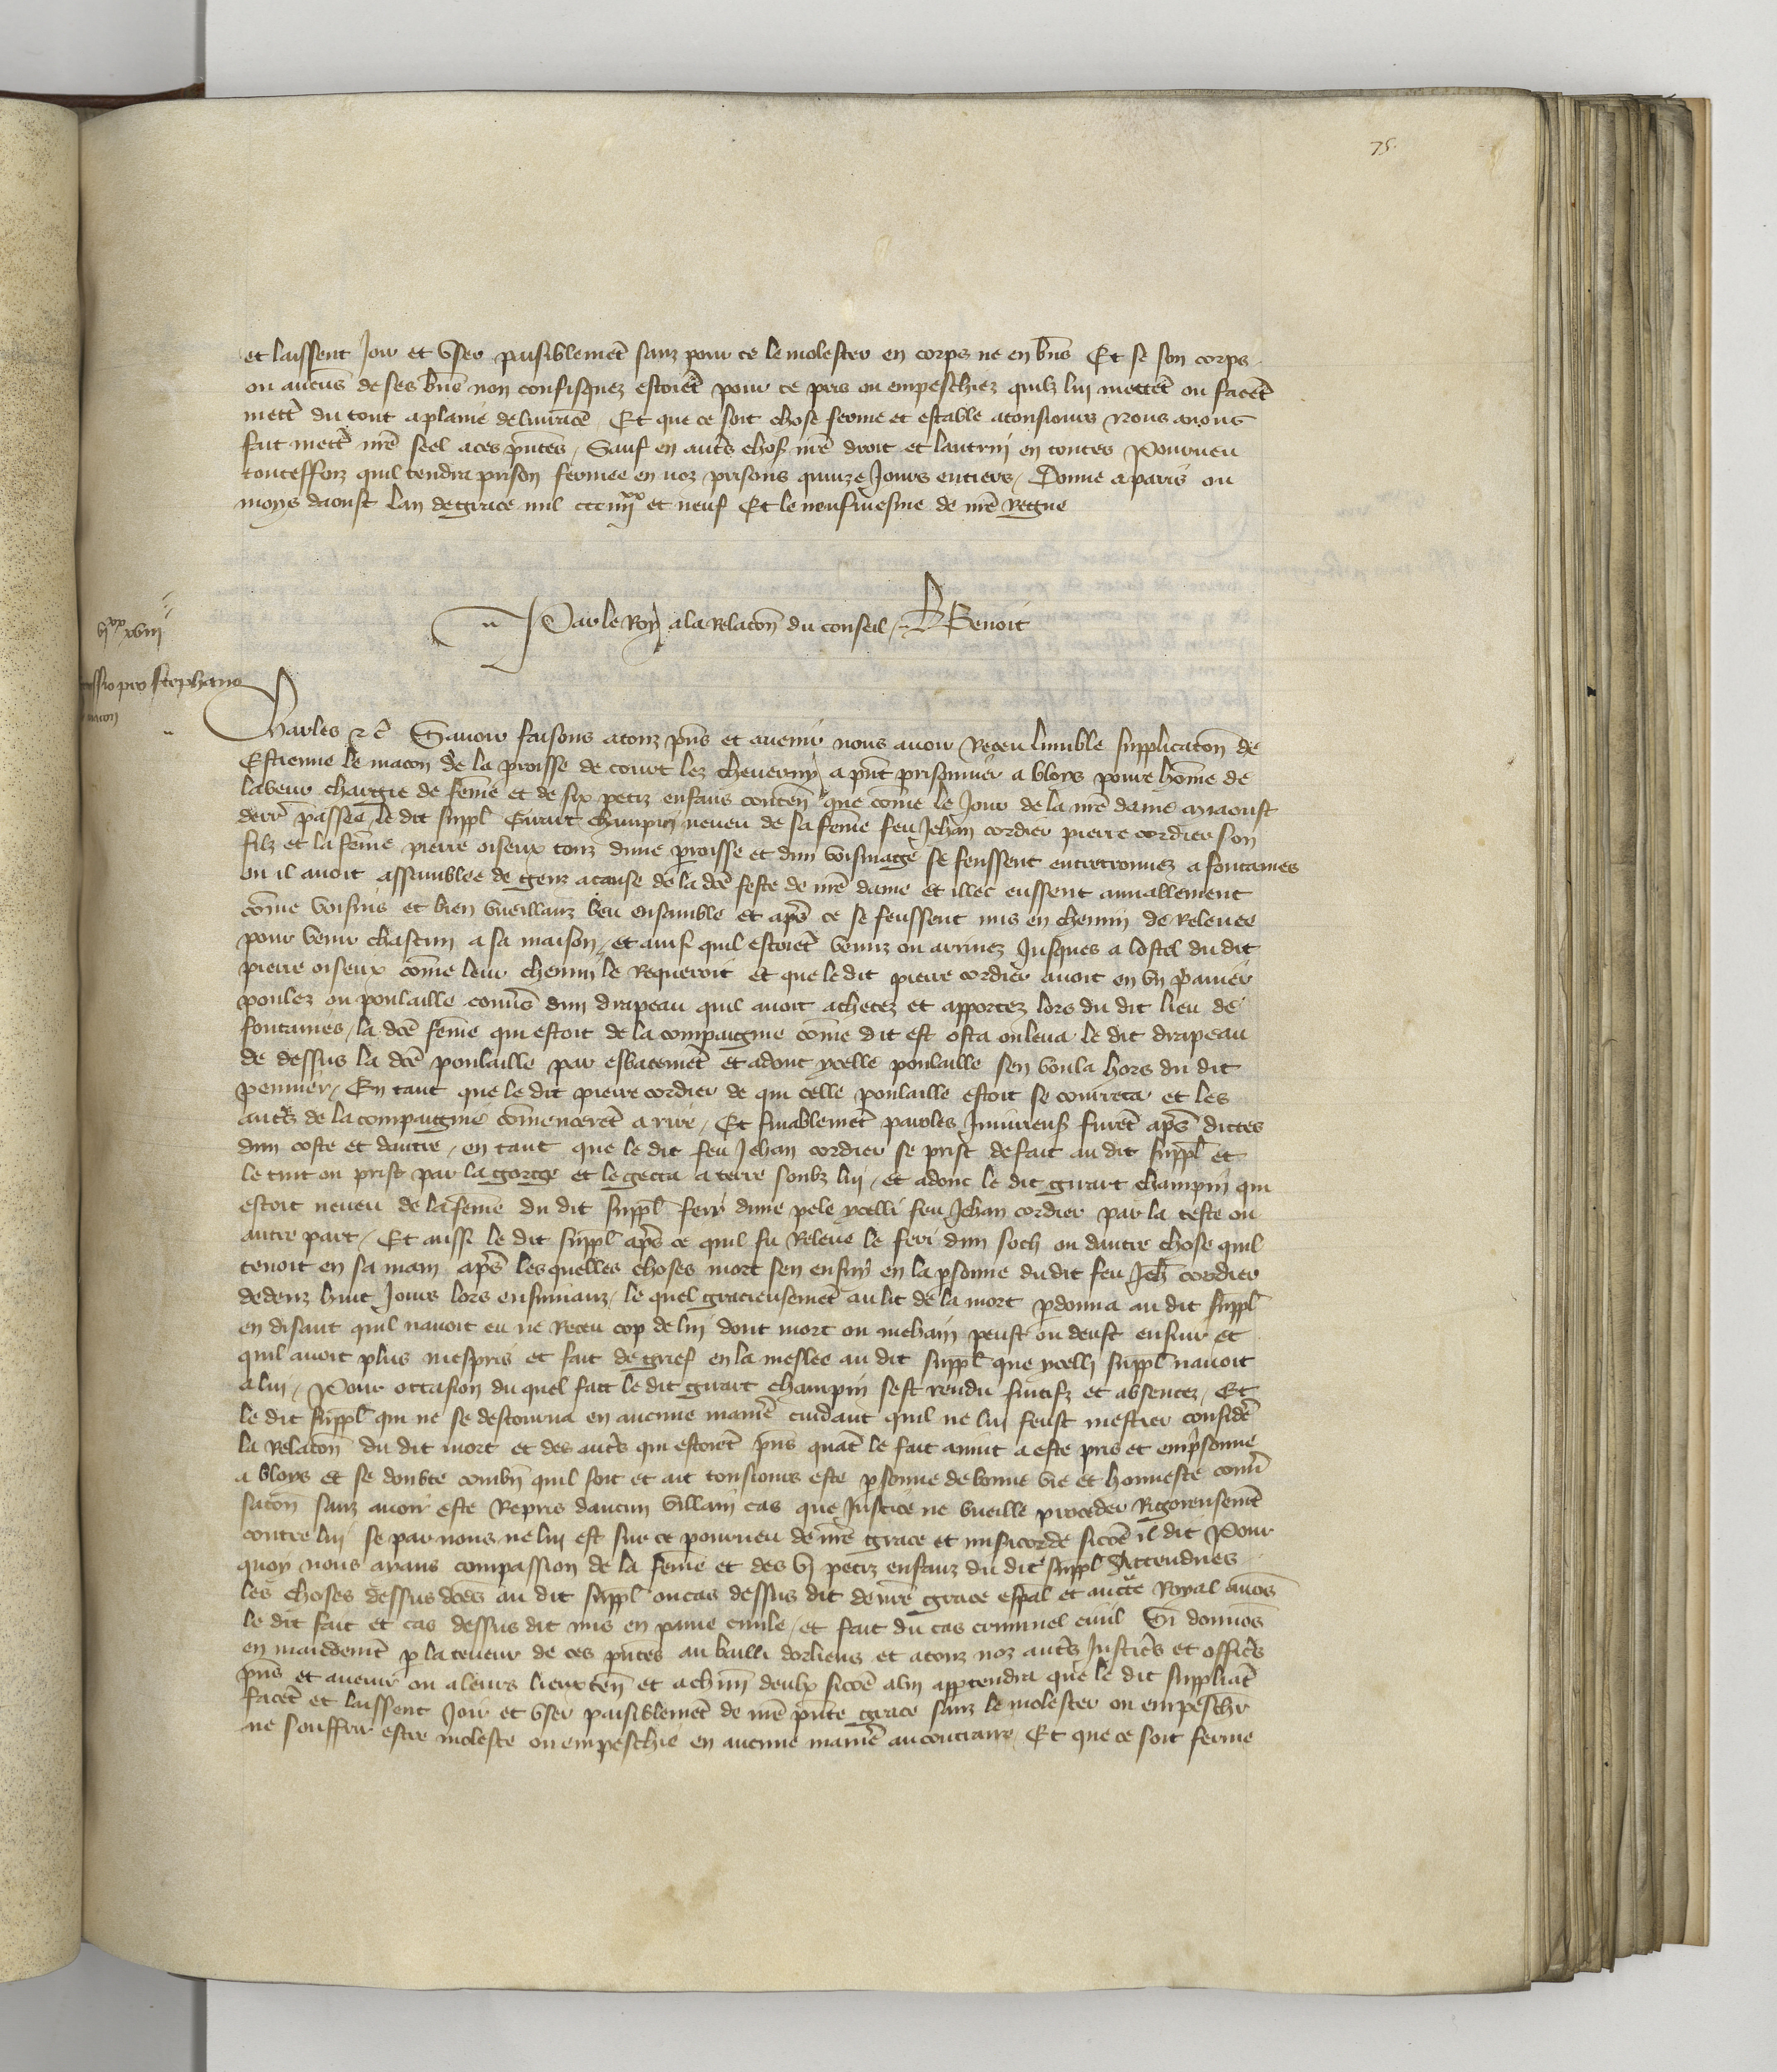 75
et laissent joir et user paisiblemēt sanz pour ce le molester en corps ne en biēs Et se son corps
ou aucūs de ses biēs non confisquez estoiēt pour ce pris ou empeschiez quilz lui mettēt ou facēt
mettr̄ du tout a plaine delivrāce Et que ce soit chose ferme et estable a tousiours Nous avons
fait mettr̄ nr̄e seel a ces p̄ntes / Sauf en autr̄s choses nr̄e droit et lautrui en toutes Pourveu
touteffoiz quil tendra prison fermee en noz prisons quinze jours entiers / Donne a paris ou
moys daoust lan de grace mil ccc iiii xx et neuf Et le neufviesme de nr̄e Regne
Par le Roy a la relacōn du conseil / Benoit
vj xx xviij
pro stephano
macon
Charles &c̄ Savoir faisons a touz p̄ns et avenir nous avoir Receu lumble supplicacōn de
Estienne le macon de la p̄roisse de court lez cheverny a p̄nt prisonnier a bloys povre hōme de
labeur chargie de fēme et de six petiz enfans contēn que cōme le jour de la nr̄e dame myaoust
derr̄ passee le dit suppl̄ Girart champin neveu de sa fēme feu Jehan cordier pierre cordier son
filz et la fēme pierre oiseux touz dune p̄roisse et dun voisinage se feussent entretrouvez a fontaines
ou il avoit assamblee de genz a cause de la dc̄e feste de nr̄e dame et illec eussent amiablement
cōme voisins et bien vueillanz beu ensamble et ap̄s ce se feussent mis en chemin de relevee
pour venir chascun a sa maison / et ainsi quil estoiēt venuz ou arrivez jusques a lostel du dit
pierre oiseux cōme leur chemin le requeroit et que le dit pierre cordier avoit en un panier
poulez ou poulaille couv̄s dun drapeau quil avoit achetez et apportez lors du dit lieu de
fontaines / la dc̄e fēme qui estoit de la compaignie cōme dit est osta ou leva le dit drapeau
de dessus la dc̄e poulaille par esbatemēt et adonc ycelle poulaille sen vola hors du dit
pennier / En tant que le dit pierre cordier de qui celle poulaille estoit se courreca et les
autr̄s de la compaignie cōmencerēt a rire / Et finablemēt paroles iniurieuses furēt ap̄s dictes
dun coste et dautre / en tant que le dit feu Jehan cordier se prist de fait au dit suppl̄ et
le tint ou prist par la gorge et le getta a terre soubz lui / et adonc le dit girart champin qui
estoit neveu de la fēme du dit suppl̄ feri dune pele ycelli feu Jehan cordier par la teste ou
autre part / Et aussi le dit suppl̄ ap̄s ce quil fu releve le feri dun soch ou dautre chose quil
tenoit en sa main ap̄s lesquelles choses mort sen ensuy en la p̄sonne du dit feu Jeh̄ cordier
dedenz huit jours lors ensuivanz / le quel gracieusemēt au lit de la mort p̄donna au dit suppl̄
en disant quil navoit eu ne receu cop de lui dont mort ou mehain peust ou deust ensuir et
quil avoit plus mespris et fait de grief en la meslee au dit suppl̄ que ycelli suppl̄ navoit
a lui / Pour occasion du quel fait le dit girart champin sest rendu fuitifz et absentez / Et
le dit suppl̄ qui ne se destourna en aucune manie᷑e cuidant quil ne lui feust mestier considēr
la relacōn du dit mort et des autr̄s qui estoiēt p̄ns quāt le fait avint a este pris et emp̄sonne
a bloys et se doubte combn̄ quil soit et ait tousiours este p̄sonne de bonne vie et honneste conv̄
sacōn sanz avoir este repris daucun villain cas que justice ne vueille proceder rigoreusemēt
contre lui se par nous ne lui est sur ce pourveu de nr̄e grace et mis̄icorde sicōe il dit Pour
quoy nous aians compassion de la fēme et des vj petiz enfanz du dit suppl̄ Attendues
les choses dessus dc̄es au dit suppl̄ ou cas dessus dit de nr̄e grace esp̄al et auct̄te Royal avōs
le dit fait et cas dessus dit mis en paine civile / et fait du cas criminel civil Si donnōs
en mandemēt p̄ la teneur de ces p̄ntes au bailli dorliens et a touz noz autr̄s justic̄s et offic̄s
p̄ns et avenir ou a leurs lieuxten̄ et a ch̄un deulx sicōe a lui app̄tendra que le dit suppliāt
facēt et laissent joir et user paisiblemēt de nr̄e p̄nte grace sanz le molester ou empeschr̄
ne souffrir estre moleste ou empeschie en aucune manie᷑e au contraire / Et que ce soit ferme